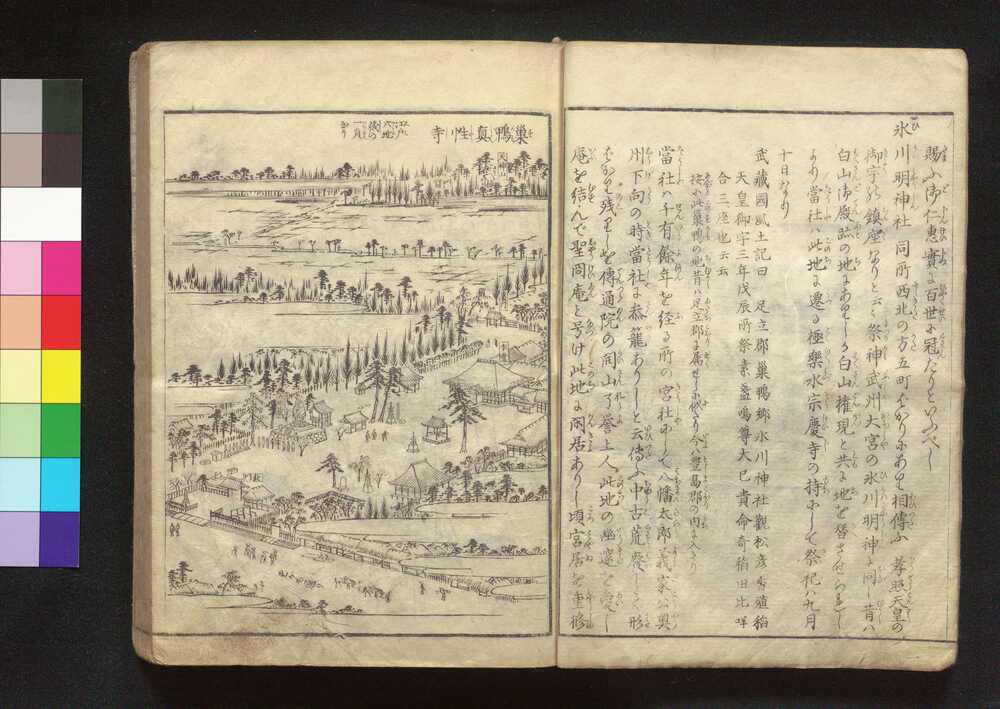 賜ふ御仁惠實に百世に冠たりといふべし
氷川明神社 同所西北の方五町ばかりにあり相傳ふ 孝照天皇の
御宇の鎮座なりと云々祭神武州大宮の氷川明神に同し昔ハ
白山御殿跡の地にありしか白山権現と共に地を替させられしより
當社ハ此地に遷る極樂水宗慶寺の持にして祭祀ハ九月
十日なり
武藏國風土記曰 足立郡巣鴨郷氷川神社觀松彦香殖稲
天皇御宇三年戊辰所祭素盞嗚尊大已貴命奇稲田比咩
合三座也云云
按に此巣鴨の地昔ハ足立郡に属せしにや今ハ豐島郡の内に入たり
當社ハ千有餘年を経る所の宮社にして八幡太郎義家公奥
州下向の時當社に参籠ありしと云傳ふ中古荒廢して形
ばかり残りしを傳通院の開山了譽上人此地の幽邃を愛し
庵を結んで聖冏庵と号け此地に閑居ありし頃宮居を重修
巣鴨真性寺
江戸
六地
蔵の
一員
なり